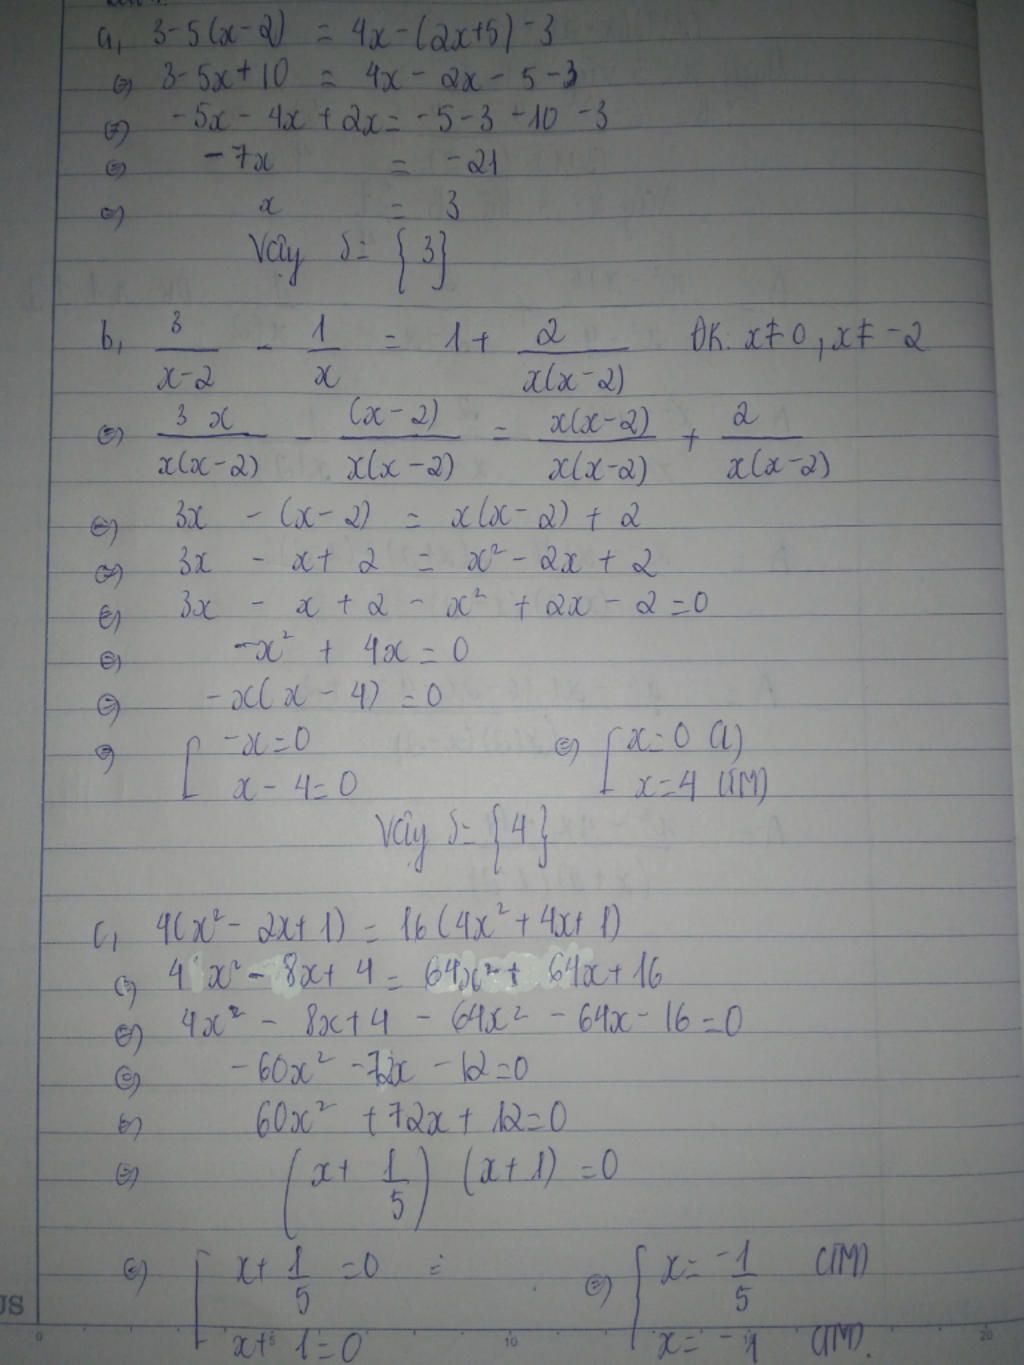 a, 3-5(x-2) = 4x-(2x+5)-3
⇔ 3-5x+10 = 4x - 2x - 5 - 3
⇔ -5x - 4x + 2x = -5-3-10-3
⇔ -7x = -21
⇔ x = 3
Vậy S = {3}
b, 3/(x-2) - 1/x = 1 + 2/(x(x-2)) ĐK: x≠0, x≠-2
⇔ 3x/(x(x-2)) - (x-2)/(x(x-2)) = x(x-2)/(x(x-2)) + 2/(x(x-2))
⇔ 3x - (x-2) = x(x-2) + 2
⇔ 3x - x + 2 = x² - 2x + 2
⇔ 3x - x + 2 - x² + 2x - 2 = 0
⇔ -x² + 4x = 0
⇔ -x(x - 4) = 0
⇔ [ -x = 0 ⇔ [ x = 0 (l)
x - 4 = 0 x = 4 (TM)
Vậy S = {4}
c, 4(x² - 2x + 1) = 16(4x² + 4x + 1)
⇔ 4x² - 8x + 4 = 64x² + 64x + 16
⇔ 4x² - 8x + 4 - 64x² - 64x - 16 = 0
⇔ -60x² - 72x - 12 = 0
⇔ 60x² + 72x + 12 = 0
⇔ (x + 1/5) (x + 1) = 0
⇔ [ x + 1/5 = 0 ⇔ [ x = -1/5 (TM)
x + 1 = 0 x = -1 (TM).
US
0 5 10 20